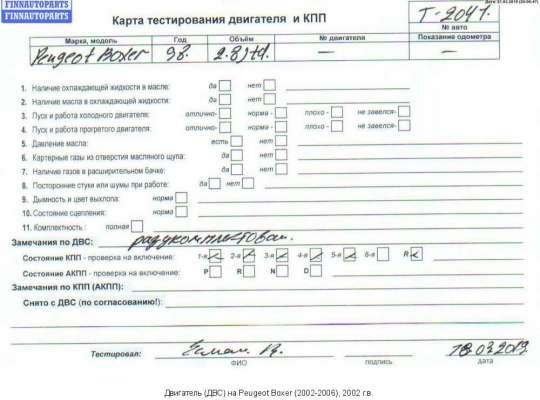 FINNAUTOPARTS
FINNAUTOPARTS
Карта тестирования двигателя и КПП
Т-2041.
№ авто
Марка, модель Год Объём № двигателя Показание одометра
Peugeot Boxer 98. 2.8jtd. — —
1. Наличие охлаждающей жидкости в масле: да нет
2. Наличие масла в охлаждающей жидкости: да нет
3. Пуск и работа холодного двигателя: отлично- норма - плохо - не завелся-
4. Пуск и работа прогретого двигателя: отлично- норма - плохо - не завелся-
5. Давление масла: есть нет
6. Картерные газы из отверстия масляного щупа: да нет
7. Наличие газов в расширительном бачке: да нет
8. Посторонние стуки или шумы при работе: да нет
9. Дымность и цвет выхлопа: норма
10. Состояние сцепления: норма
11. Комплектность : полная
Замечания по ДВС: разукомплектован.
Состояние КПП - проверка на включение: 1-я 2-я 3-я 4-я 5-я 6-я R
Состояние АКПП - проверка на включение: P R N D
Замечания по КПП (АКПП):
Снято с ДВС (по согласованию!):
Тестировал: 18.03.2019
ФИО подпись дата
Двигатель (ДВС) на Peugeot Boxer (2002-2006), 2002 г.в.